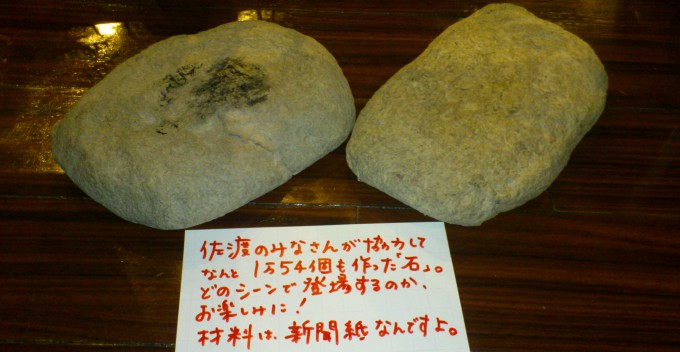 佐渡のみなさんが協力して
なんと1万54個も作った「石」。
どのシーンで登場するのか、
お楽しみに!
材料は、新聞紙なんですよ。